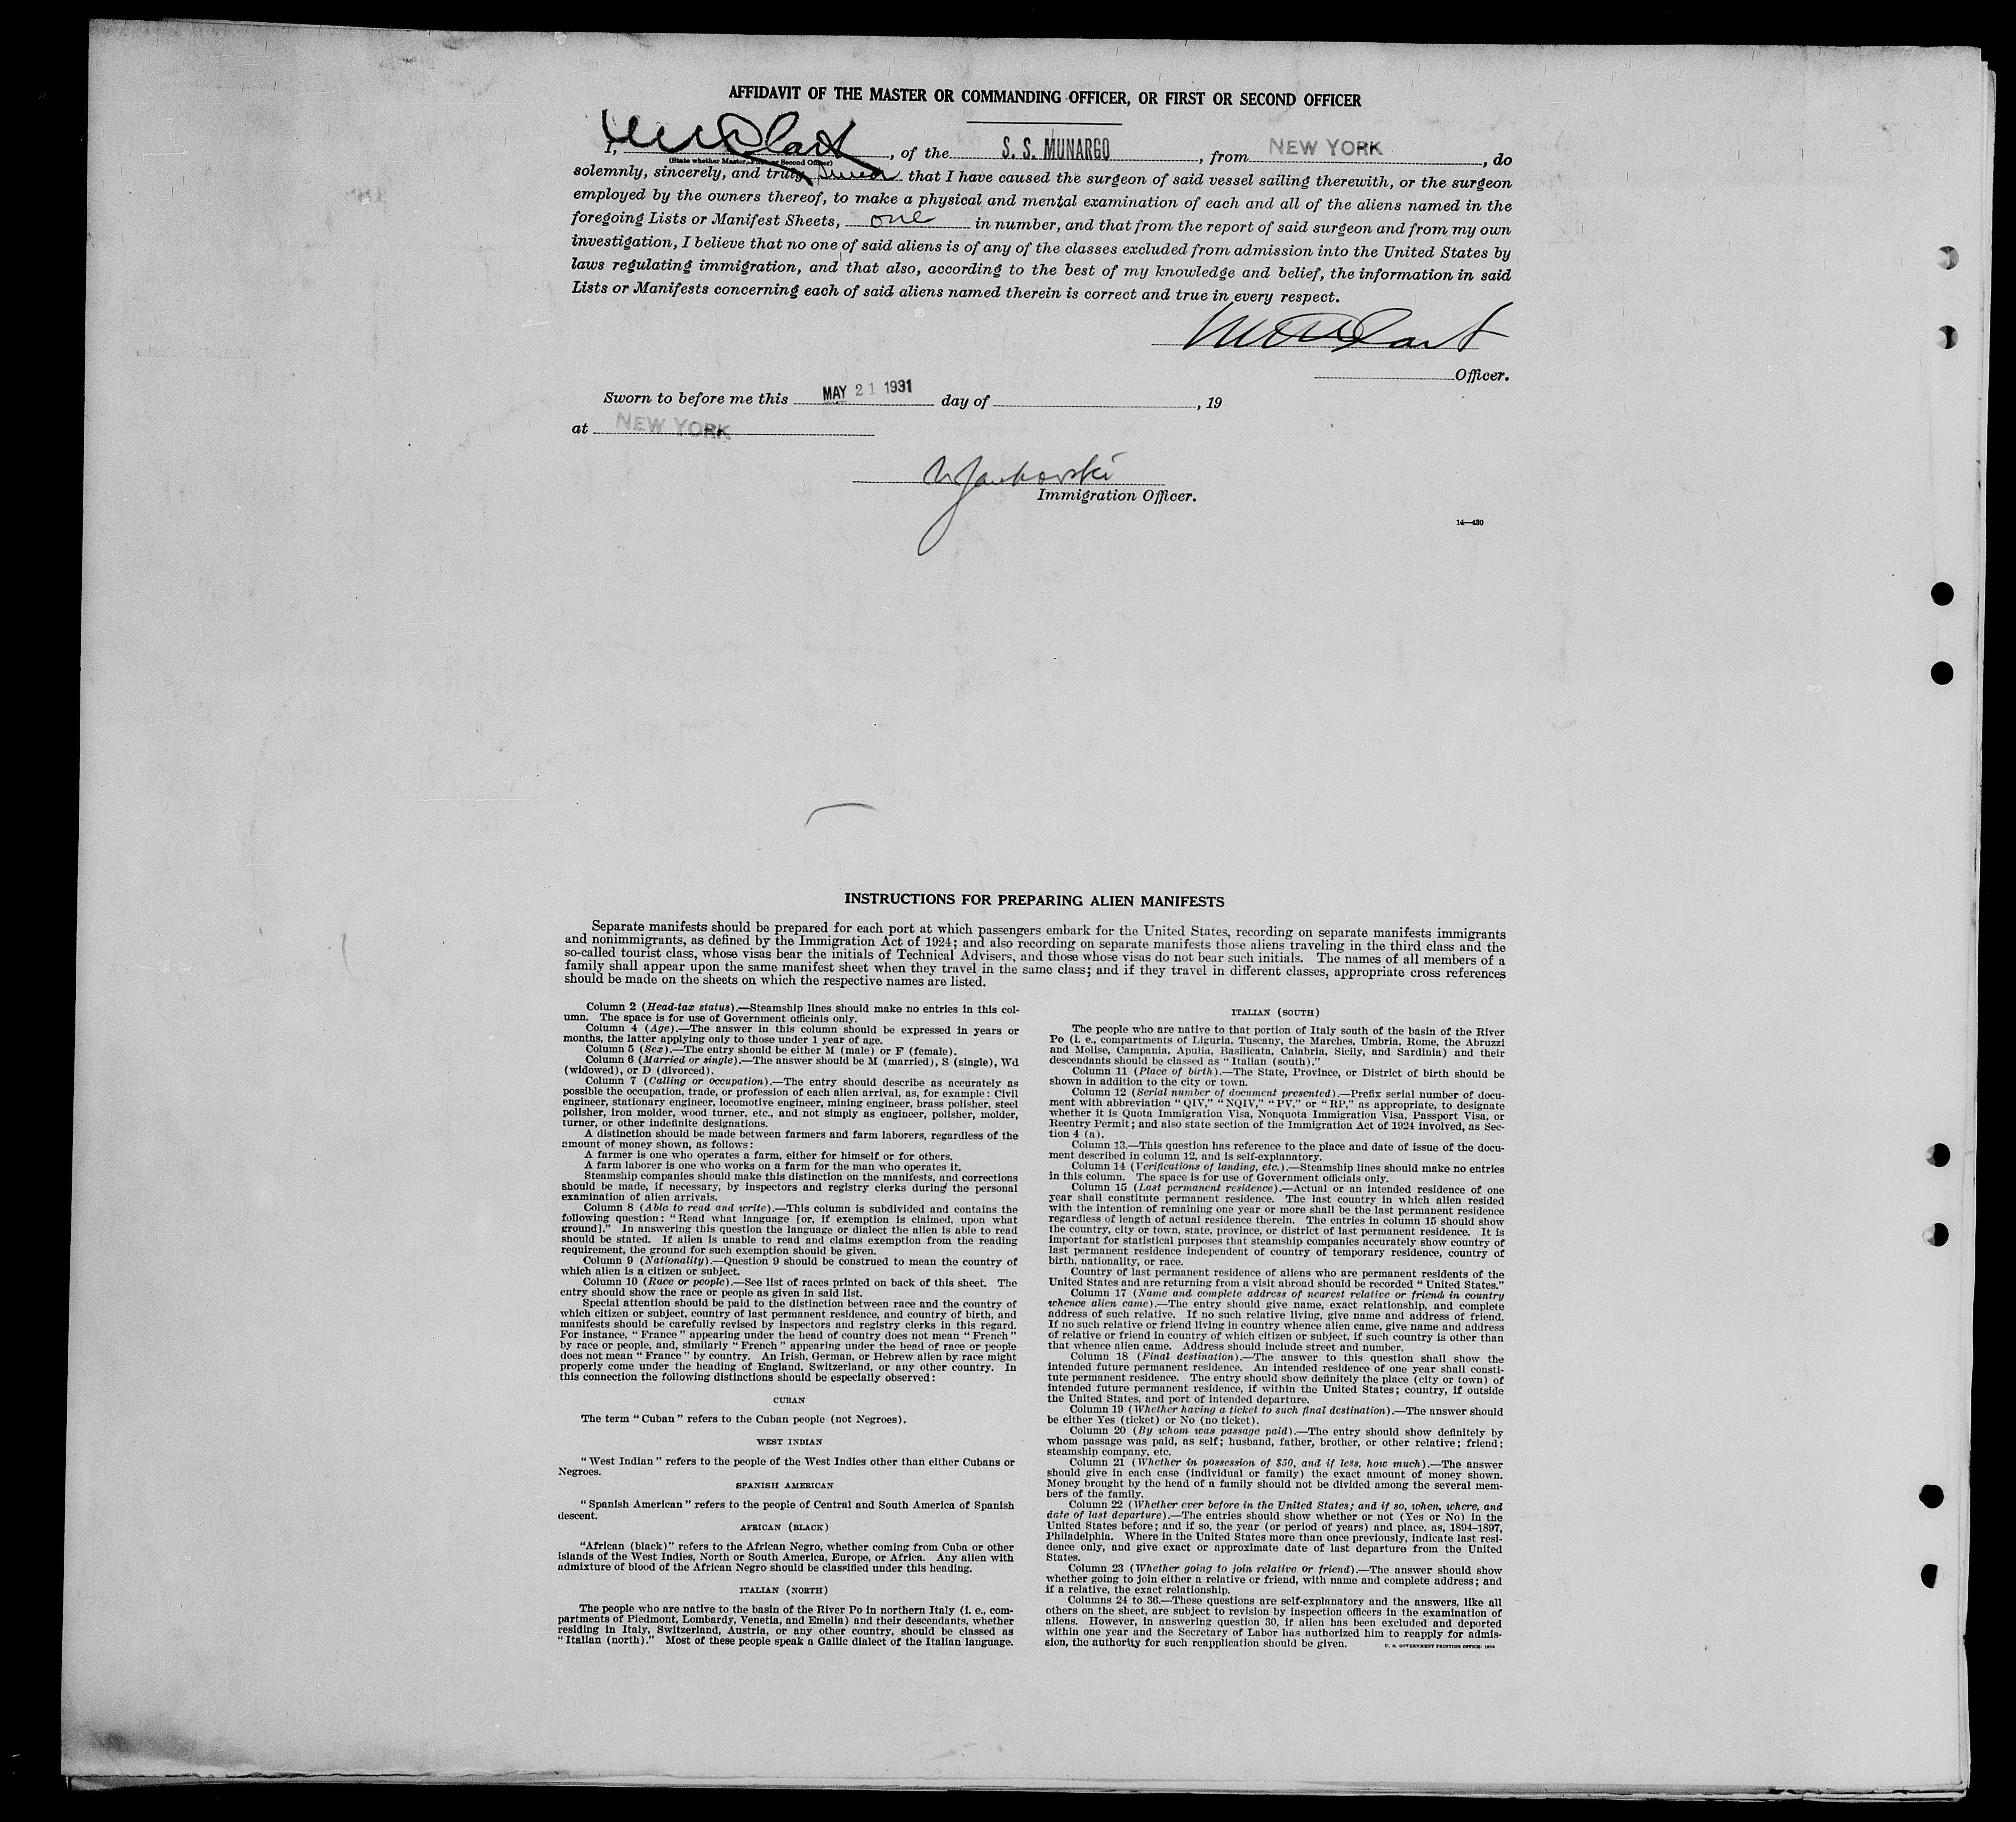 AFFIDAVIT OF THE MASTER OR COMMANDING OFFICER, OR FIRST OR SECOND OFFICER
I, , of the S. S. MUNARGO, from NEW YORK, do
(State whether Master, First or Second Officer)
solemnly, sincerely, and truly swear that I have caused the surgeon of said vessel sailing therewith, or the surgeon
employed by the owners thereof, to make a physical and mental examination of each and all of the aliens named in the
foregoing Lists or Manifest Sheets, one in number, and that from the report of said surgeon and from my own
investigation, I believe that no one of said aliens is of any of the classes excluded from admission into the United States by
laws regulating immigration, and that also, according to the best of my knowledge and belief, the information in said
Lists or Manifests concerning each of said aliens named therein is correct and true in every respect.
Officer.
Sworn to before me this MAY 21 1931 day of , 19
at NEW YORK
Jankovski
Immigration Officer.
14—430
INSTRUCTIONS FOR PREPARING ALIEN MANIFESTS
Separate manifests should be prepared for each port at which passengers embark for the United States, recording on separate manifests immigrants
and nonimmigrants, as defined by the Immigration Act of 1924; and also recording on separate manifests those aliens traveling in the third class and the
so-called tourist class, whose visas bear the initials of Technical Advisers, and those whose visas do not bear such initials. The names of all members of a
family shall appear upon the same manifest sheet when they travel in the same class; and if they travel in different classes, appropriate cross references
should be made on the sheets on which the respective names are listed.
Column 2 (Head-tax status).—Steamship lines should make no entries in this col-
umn. The space is for use of Government officials only.
Column 4 (Age).—The answer in this column should be expressed in years or
months, the latter applying only to those under 1 year of age.
Column 5 (Sex).—The entry should be either M (male) or F (female).
Column 6 (Married or single).—The answer should be M (married), S (single), Wd
(widowed), or D (divorced).
Column 7 (Calling or occupation).—The entry should describe as accurately as
possible the occupation, trade, or profession of each alien arrival, as, for example: Civil
engineer, stationary engineer, locomotive engineer, mining engineer, brass polisher, steel
polisher, iron molder, wood turner, etc., and not simply as engineer, polisher, molder,
turner, or other indefinite designations.
A distinction should be made between farmers and farm laborers, regardless of the
amount of money shown, as follows:
A farmer is one who operates a farm, either for himself or for others.
A farm laborer is one who works on a farm for the man who operates it.
Steamship companies should make this distinction on the manifests, and corrections
should be made, if necessary, by inspectors and registry clerks during the personal
examination of alien arrivals.
Column 8 (Able to read and write).—This column is subdivided and contains the
following question: "Read what language [or, if exemption is claimed, upon what
ground]." In answering this question the language or dialect the alien is able to read
should be stated. If alien is unable to read and claims exemption from the reading
requirement, the ground for such exemption should be given.
Column 9 (Nationality).—Question 9 should be construed to mean the country of
which alien is a citizen or subject.
Column 10 (Race or people).—See list of races printed on back of this sheet. The
entry should show the race or people as given in said list.
Special attention should be paid to the distinction between race and the country of
which citizen or subject, country of last permanent residence, and country of birth, and
manifests should be carefully revised by inspectors and registry clerks in this regard.
For instance, "France" appearing under the head of country does not mean "French"
by race or people, and, similarly "French" appearing under the head of race or people
does not mean "France" by country. An Irish, German, or Hebrew alien by race might
properly come under the heading of England, Switzerland, or any other country. In
this connection the following distinctions should be especially observed:
CUBAN
The term "Cuban" refers to the Cuban people (not Negroes).
WEST INDIAN
"West Indian" refers to the people of the West Indies other than either Cubans or
Negroes.
SPANISH AMERICAN
"Spanish American" refers to the people of Central and South America of Spanish
descent.
AFRICAN (BLACK)
"African (black)" refers to the African Negro, whether coming from Cuba or other
islands of the West Indies, North or South America, Europe, or Africa. Any alien with
admixture of blood of the African Negro should be classified under this heading.
ITALIAN (NORTH)
The people who are native to the basin of the River Po in northern Italy (i. e., com-
partments of Piedmont, Lombardy, Venetia, and Emelia) and their descendants, whether
residing in Italy, Switzerland, Austria, or any other country, should be classed as
"Italian (north)." Most of these people speak a Gallic dialect of the Italian language.
ITALIAN (SOUTH)
The people who are native to that portion of Italy south of the basin of the River
Po (i. e., compartments of Liguria, Tuscany, the Marches, Umbria, Rome, the Abruzzi
and Molise, Campania, Apulia, Basilicata, Calabria, Sicily, and Sardinia) and their
descendants should be classed as "Italian (south)."
Column 11 (Place of birth).—The State, Province, or District of birth should be
shown in addition to the city or town.
Column 12 (Serial number of document presented).—Prefix serial number of docu-
ment with abbreviation "QIV," "NQIV," "PV," or "RP," as appropriate, to designate
whether it is Quota Immigration Visa, Nonquota Immigration Visa, Passport Visa, or
Reentry Permit; and also state section of the Immigration Act of 1924 involved, as Sec-
tion 4 (a).
Column 13.—This question has reference to the place and date of issue of the docu-
ment described in column 12, and is self-explanatory.
Column 14 (Verifications of landing, etc.).—Steamship lines should make no entries
in this column. The space is for use of Government officials only.
Column 15 (Last permanent residence).—Actual or an intended residence of one
year shall constitute permanent residence. The last country in which alien resided
with the intention of remaining one year or more shall be the last permanent residence
regardless of length of actual residence therein. The entries in column 15 should show
the country, city or town, state, province, or district of last permanent residence. It is
important for statistical purposes that steamship companies accurately show country of
last permanent residence independent of country of temporary residence, country of
birth, nationality, or race.
Country of last permanent residence of aliens who are permanent residents of the
United States and are returning from a visit abroad should be recorded "United States."
Column 17 (Name and complete address of nearest relative or friend in country
whence alien came).—The entry should give name, exact relationship, and complete
address of such relative. If no such relative living, give name and address of friend.
If no such relative or friend living in country whence alien came, give name and address
of relative or friend in country of which citizen or subject, if such country is other than
that whence alien came. Address should include street and number.
Column 18 (Final destination).—The answer to this question shall show the
intended future permanent residence. An intended residence of one year shall consti-
tute permanent residence. The entry should show definitely the place (city or town) of
intended future permanent residence, if within the United States; country, if outside
the United States, and port of intended departure.
Column 19 (Whether having a ticket to such final destination).—The answer should
be either Yes (ticket) or No (no ticket).
Column 20 (By whom was passage paid).—The entry should show definitely by
whom passage was paid, as self; husband, father, brother, or other relative; friend;
steamship company, etc.
Column 21 (Whether in possession of $50, and if less, how much).—The answer
should give in each case (individual or family) the exact amount of money shown.
Money brought by the head of a family should not be divided among the several mem-
bers of the family.
Column 22 (Whether ever before in the United States; and if so, when, where, and
date of last departure).—The entries should show whether or not (Yes or No) in the
United States before; and if so, the year (or period of years) and place, as, 1894–1897,
Philadelphia. Where in the United States more than once previously, indicate last resi-
dence only, and give exact or approximate date of last departure from the United
States.
Column 23 (Whether going to join relative or friend).—The answer should show
whether going to join either a relative or friend, with name and complete address; and
if a relative, the exact relationship.
Columns 24 to 36.—These questions are self-explanatory and the answers, like all
others on the sheet, are subject to revision by inspection officers in the examination of
aliens. However, in answering question 30, if alien has been excluded and deported
within one year and the Secretary of Labor has authorized him to reapply for admis-
sion, the authority for such reapplication should be given.
U. S. GOVERNMENT PRINTING OFFICE: